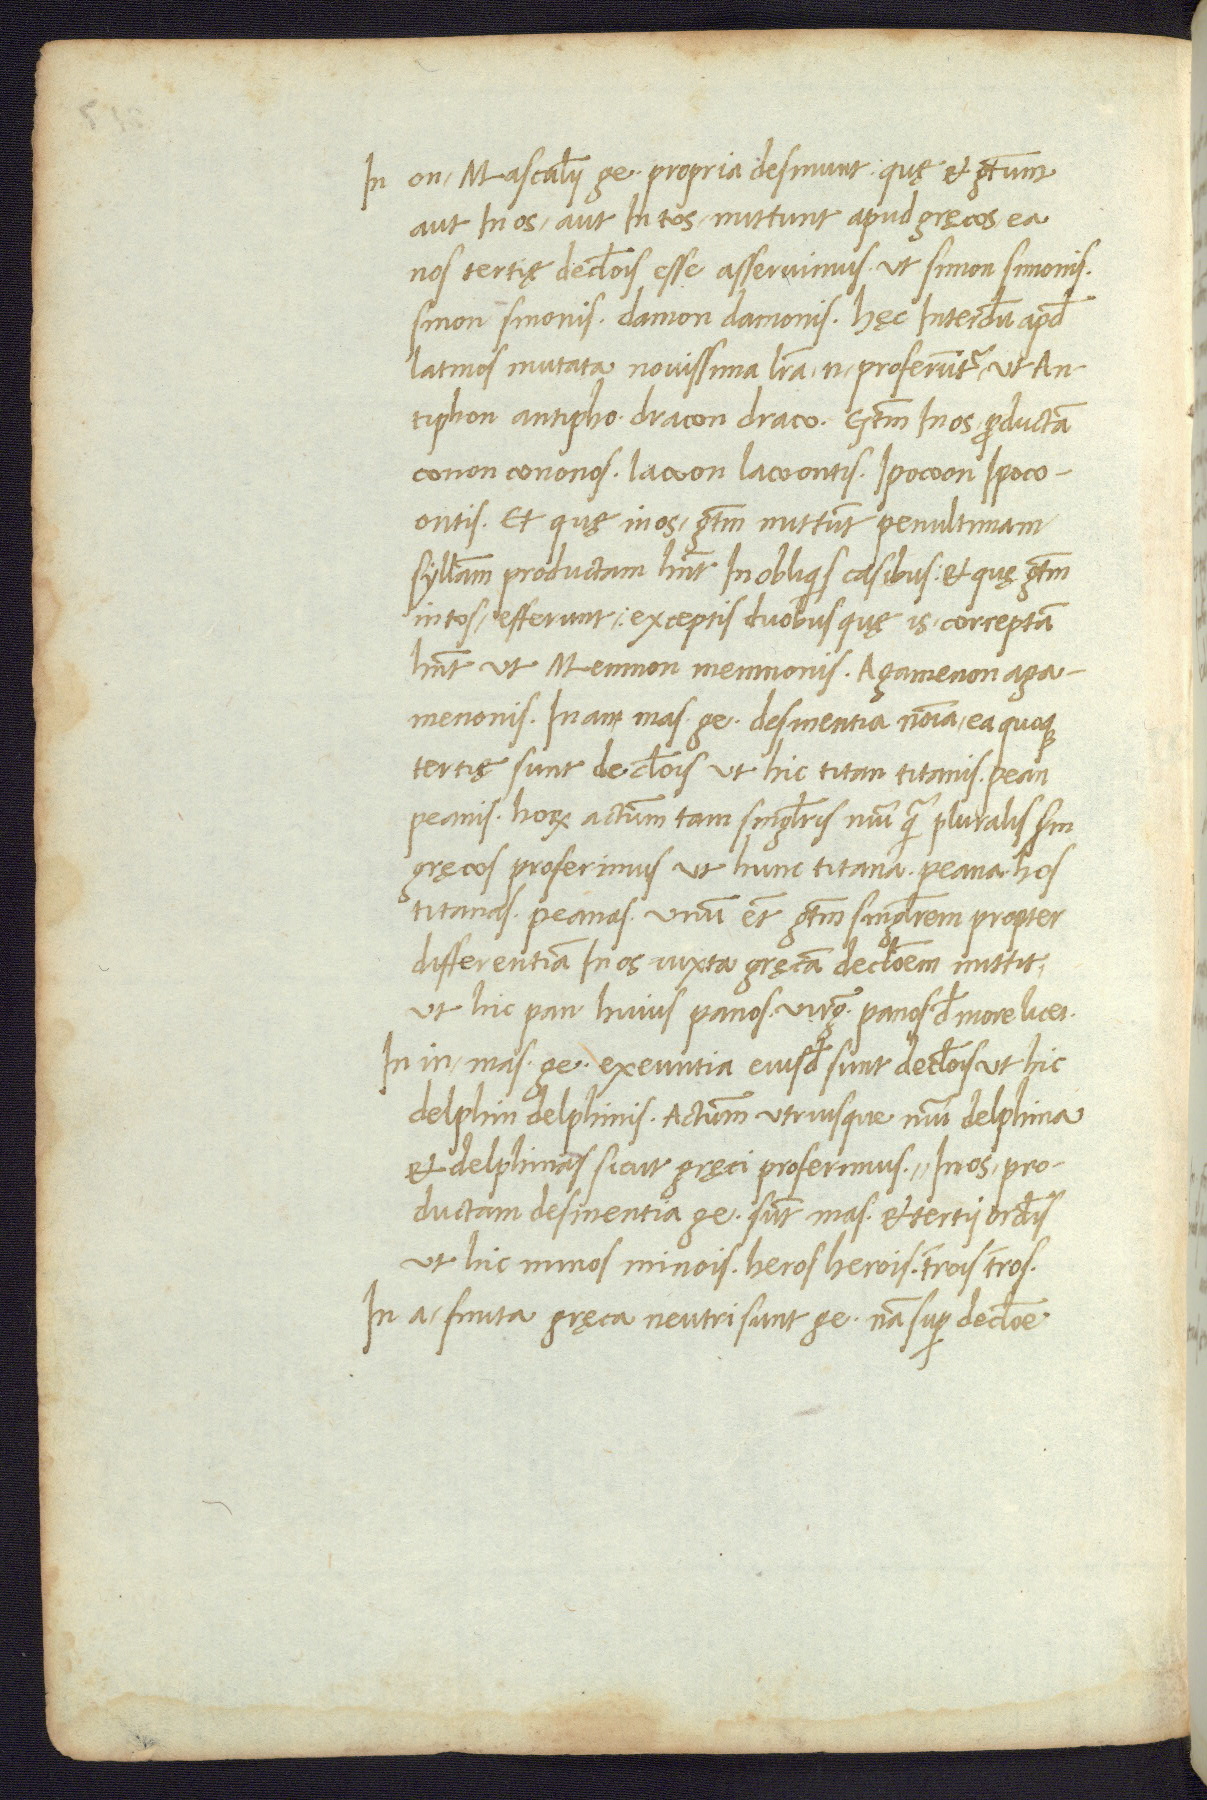 In on, Masculȷ̄ ge. propria desinunt: quę et gtm̄
aut In os, aut In tos, mittunt apud gręcos, ea
nos tertię decl̄ois esse asserimus. ut simon simonis.
sinon sinonis. damon damonis. hęc Interdū apd̄
latinos mutata novissima lr̄a, n, proferūt᷑, ut An-
tiphon antipho. dracon draco. Gtm̄ In os, ꝓductā
conon cononos. lacoon lacoontis. Ipocoon Ipoco-
ontis. Et quę in os, gtm̄ mittūt penultimam
syll̄am productam hn̄t In obliqis casibus: et quę gtm̄
in tos, efferunt: exceptis duobus quę is, correptā
hn̄t ut Memnon memnonis. Agamenon aga-
menonis. In an, mas. ge. desinentia no͞ia, ea quoqꝫ
tertię sunt decl̄ois ut hic titan titanis. pean
peanis. hoꝝ actūm tam sinḡlris nūi q̄ pluralis sm̄
gręcos proferimus ut hunc titana. peana. hos
titanas. peanas. unū et̄ gtm̄ singl̄rem propter
differentiā In os iuxta gręcā decl̄oem mittit,
ut hic pan huius panos. virg̊. panos d̄ more licei.
In in, mas. ge. exeuntia eiusd̄ sunt decl̄ois ut hic
delphin delphinis. Actūm utriusque nūi delphina
et delphinas sicut gręci proferimus., In os, pro-
ductam desinentia ge. sūt mas. et tertij ord̄is
ut hic minos minois. heros herois. trois tros.
In a, finita gręca neutri sunt ge. nā suꝑ decl̄oe